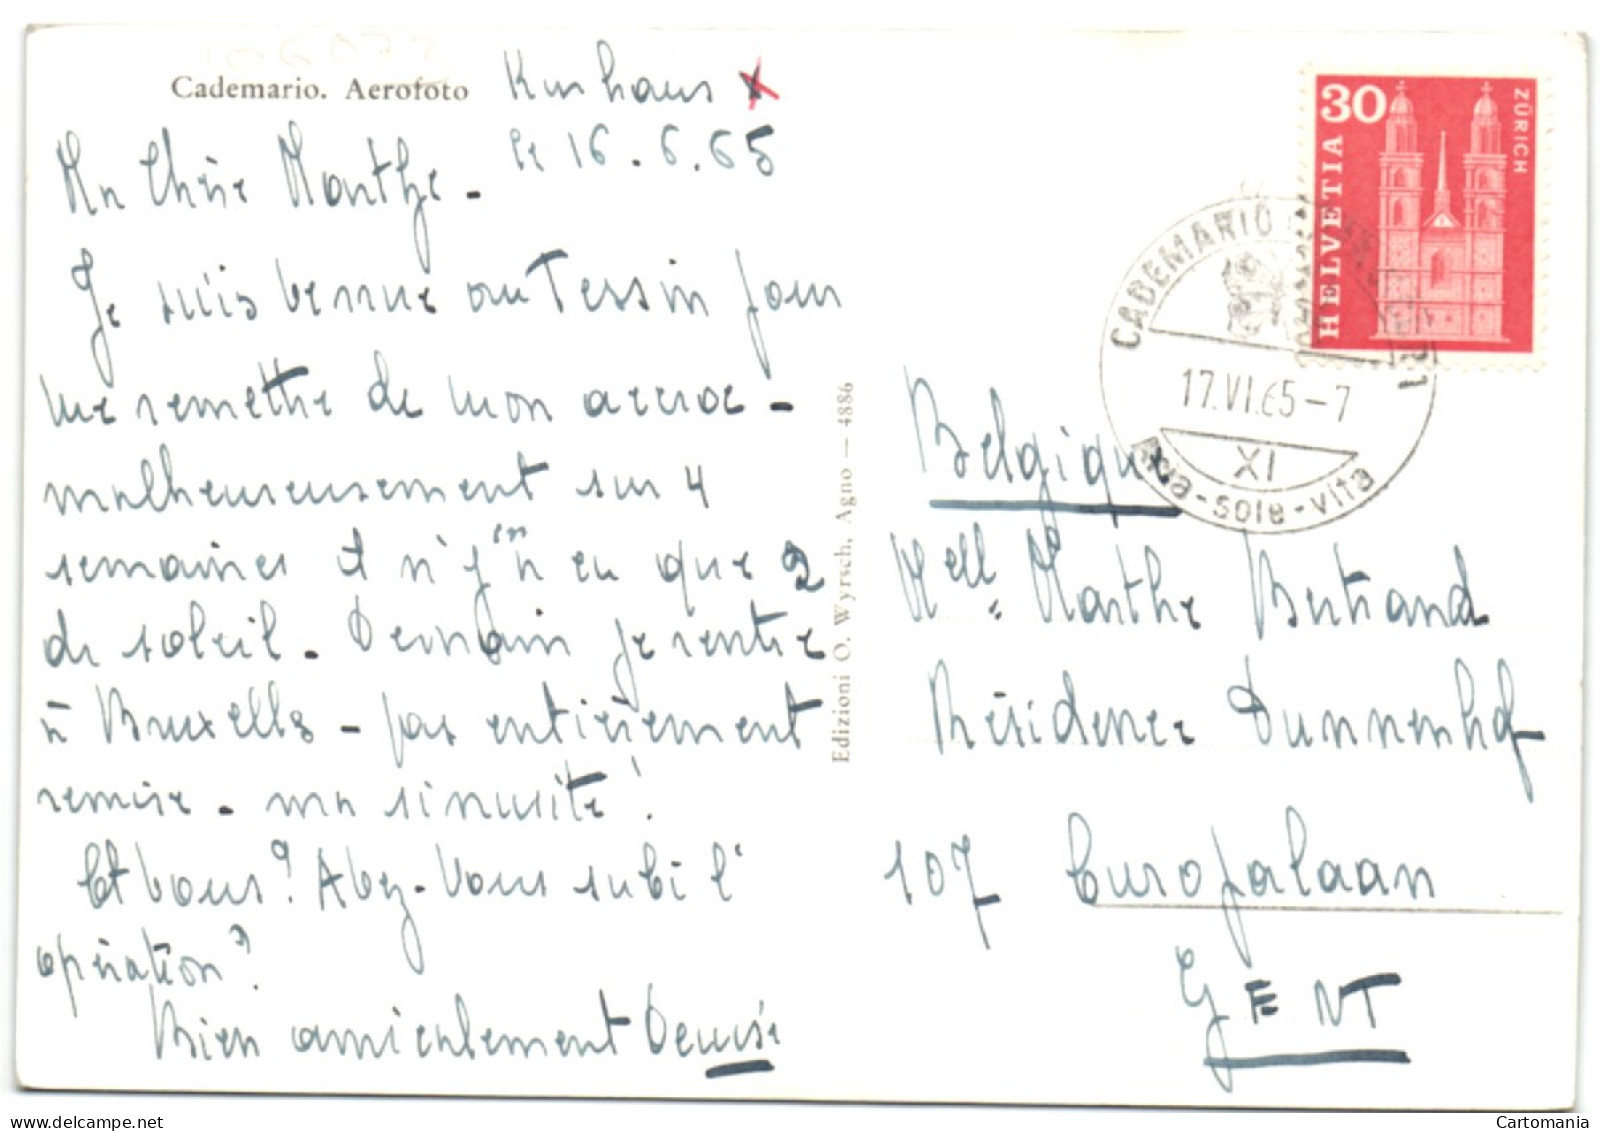 Cademario. Aerofoto
Kurhaus x
le 16.6.65
Ma Chère Marthe -
Je suis venue au Tessin pour
me remettre de mon
malheureusement sur 4
semaines il n'y en eu que 2
de soleil - Demain je rentre
à Bruxelles - pas entièrement
remise - ma sinusite !
Et vous ? Avez-vous subi l'
opération ?
Bien amicalement Denise
Edizioni O. Wyrsch, Agno — 4886
30
HELVETIA
ZÜRICH
CADEMARIO
17.VI.65-7
XI
-sole-vita
Belgique
Melle Marthe Bertrand
Résidence Dunnenhof
107 Europalaan
GENT
Cartomania